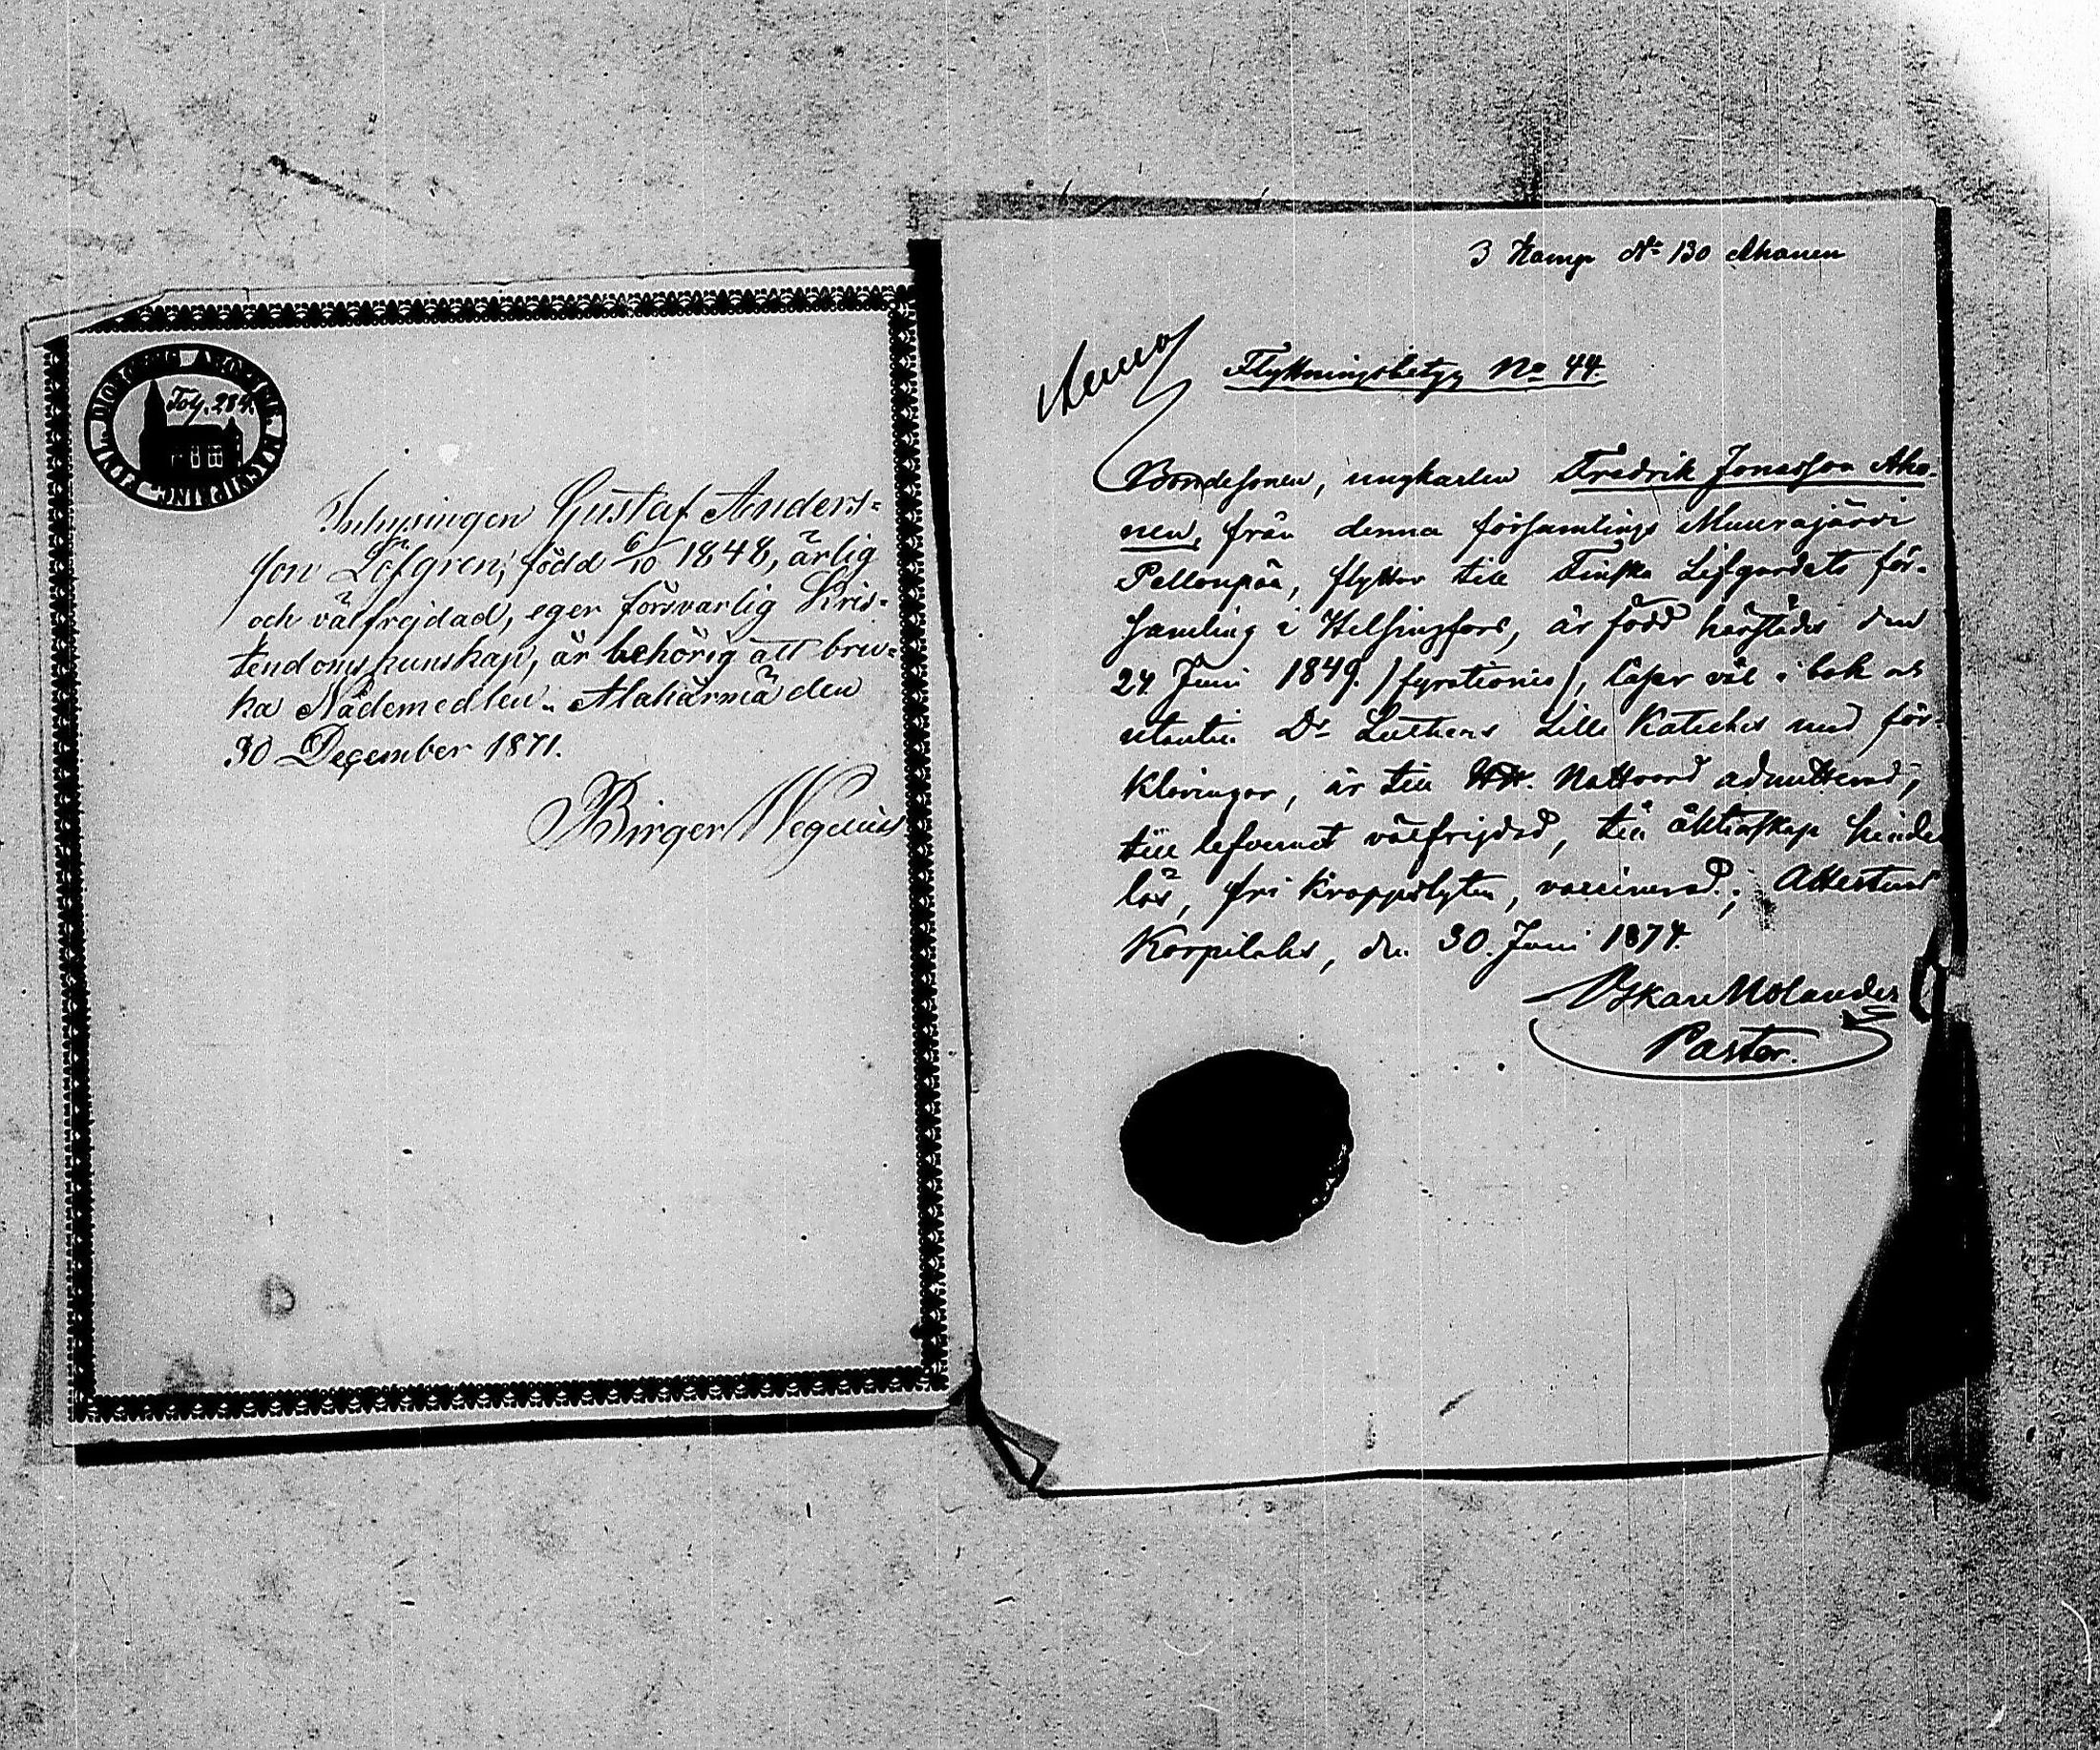 Fol. 284.
Inhysingen Gustaf Anders-
son Löfgren, född 6/10 1848, ärlig
och välfrejdad, eger försvarlig Kris-
tendomskunskap, är behörig att bru-
ka Nådemedlen. Alahärmä den
30 December 1871.
Birger Wegelius
3 Komp No 130 Ahonen
Flyttningsbetyg No 44.
Bondesonen, ungkarlen Fredrik Jonasson Aho-
nen, från denna församlings Muurajärvi
Pellonpää, flyttar till Finska Lifgardets för-
samling i Helsingfors, är född härstädes den
24 Juni 1849. /fyrationio/, läser väl i bok och
utantill Dr Luthers Lilla Kateches med för-
klaringar, är till HH. Nattvard admitterad,
till lefvernet välfrejdad, till äktenskap hinder
lös, fri kroppslyten, vaccinerad; Attesterad
Korpilaks, den 30. Juni 1874.
Oskar Molander
Pastor.